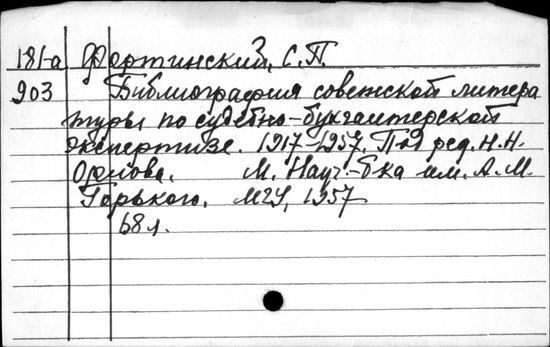 181-а Фортинский, С.П.
903 Библиография советской литера
туры по судебно-бухгалтерской
экспертизе. 1917-1957. Под ред. Н.Н.
М. Науч. б-ка им. А.М.
Горького. МГУ, 1957
68 л.